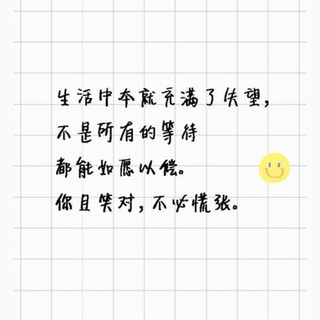 生活中本就充满了失望，
不是所有的等待
都能如愿以偿。
你且笑对，不必慌张。